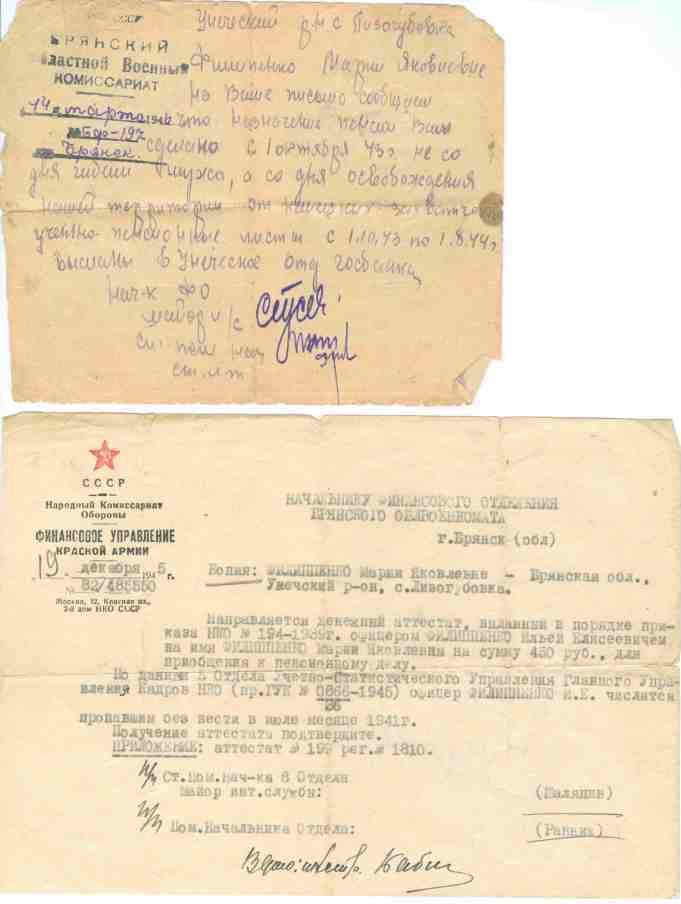 СССР
БРЯНСКИЙ
Областной Военный
КОМИССАРИАТ
14 марта 1946
Брянск.
Унеческий р-н с Лизогубовка
Филипенко Марии Яковлевне
На Ваше письмо сообщаем
что назначение пенсии Вам
сделано с 1 октября 43 г не со
дня гибели мужа, а со дня освобождения
нашей территории от немецких захватчиков
учетно пенсионные листы с 1.10.43 по 1.8.44 г.
высланы в Унечское отд госбанка
Нач-к ФО
майор и/с
ст. лт
СССР
Народный Комиссариат
Обороны
ФИНАНСОВОЕ УПРАВЛЕНИЕ
КРАСНОЙ АРМИИ
19 декабря 1945 г.
№ 82/485550
Москва, 12, Красная пл.,
2-й дом НКО СССР
НАЧАЛЬНИКУ ФИНАНСОВОГО ОТДЕЛЕНИЯ
БРЯНСКОГО ОБЛВОЕНКОМАТА
г.Брянск (обл)
Копия: ФИЛИППЕНКО Марии Яковлевне - Брянская обл.,
Унечский р-он, с.Лизогубовка.
Направляется денежный аттестат, выданный в порядке при-
каза НКО № 194-1939г. офицером ФИЛИППЕНКО Ильей Елисеевичем
на имя ФИЛИППЕНКО Марии Яковлевны на сумму 450 руб., для
приобщения к пенсионному делу.
По данным 5 Отдела Учетно-Статистического Управления Главного Упра-
вления Кадров НКО (пр.ГУК № 0666-1945) офицер ФИЛИППЕНКО И.Е. числится
пропавшим без вести в июле месяце 1941г.
Получение аттестата подтвердите.
ПРИЛОЖЕНИЕ: аттестат № 199 рег.№ 1810.
п/п Ст.Пом.Нач-ка 6 Отдела
Майор инт.службы: (Шаляпин)
п/п Пом.Начальника Отдела: